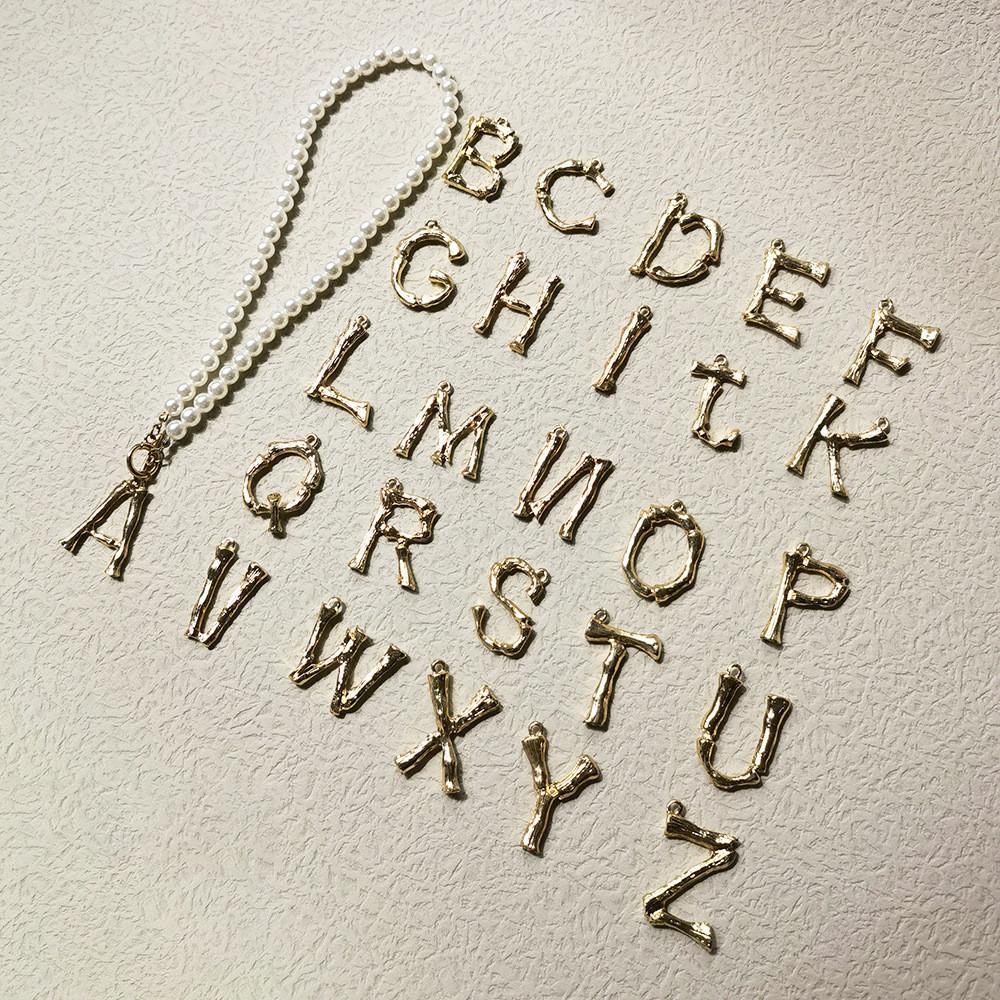 A
B C D E F
G H I J K
L M N O P
Q R S T U
V W X Y Z